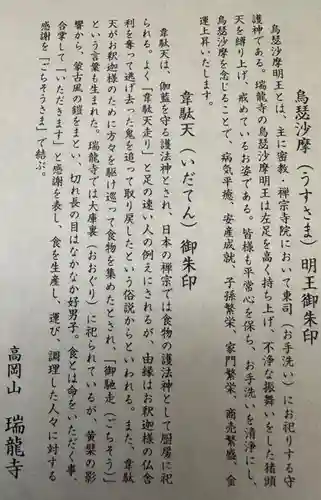 烏瑟沙摩（うすさま）明王御朱印
烏瑟沙摩明王とは、主に密教・禅宗寺院において東司（お手洗い）にお祀りする守
護神である。瑞龍寺の烏瑟沙摩明王は左足を高く持ち上げ、不浄な振舞いをした猪頭
天を縛り上げ、戒めているお姿である。皆様も平常心を保ち、お手洗いを清浄にし、
烏瑟沙摩を念じることで、病気平癒、安産成就、子孫繁栄、家門繁栄、商売繁盛、金
運上昇いたします。
韋駄天（いだてん）御朱印
韋駄天は、伽藍を守る護法神とされ、日本の禅宗では食物の護法神として厨房に祀
られる。よく「韋駄天走り」と足の速い人の例えにされるが、由縁はお釈迦様の仏舎
利を奪って逃げ去った鬼を追って取り戻したという俗説からといわれる。また、韋駄
天がお釈迦様のために方々を駆け巡って食物を集めたとされ、「御馳走（ごちそう）」
という言葉も生まれた。瑞龍寺では大庫裏（おおくり）に祀られているが、黄檗の影
響から、蒙古風の鎧をまとい、切れ長の目はなかなか好男子。食とは命をいただく事、
合掌して「いただきます」と感謝を表し、食を生産し、運び、調理した人々に対する
感謝を「ごちそうさま」で結ぶ。
高岡山　瑞龍寺